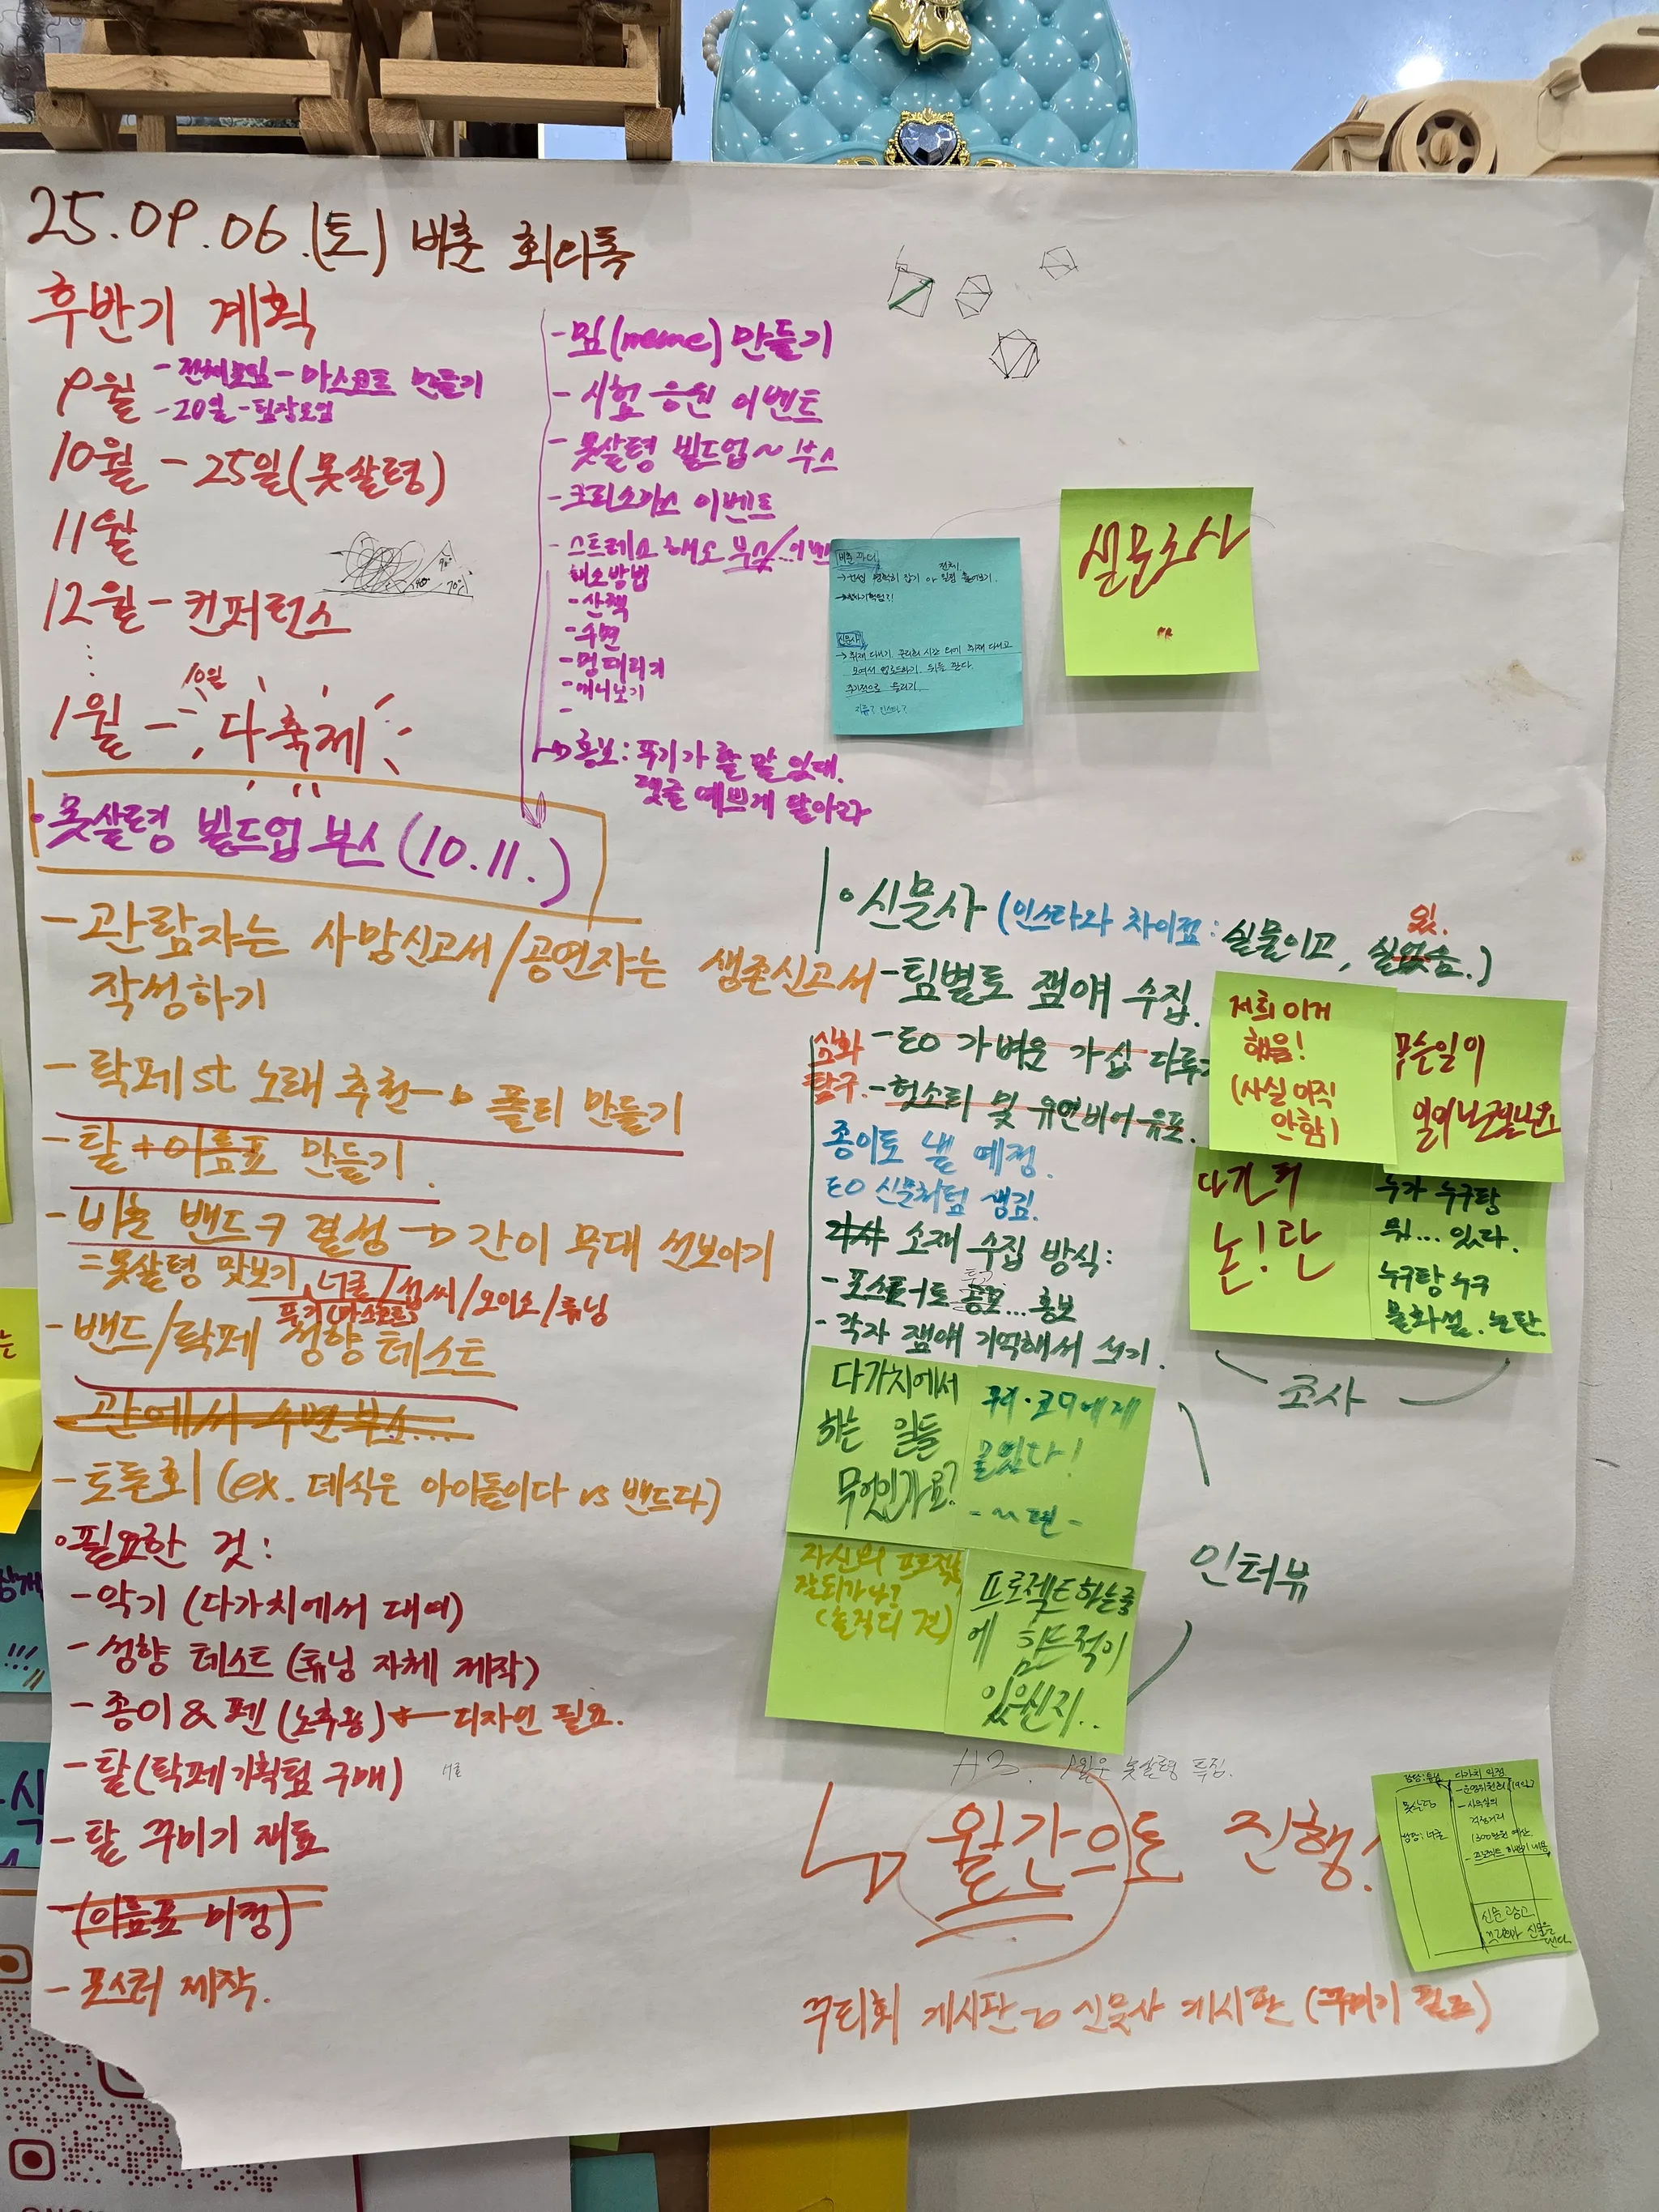 25.09.06.(토) 버춘 회의록
후반기 계획
9월 - 전체모임 - 마스코트 만들기
- 20일 - 팀장모임
10월 - 25일(못살령)
11월
12월 - 컨퍼런스
10월
1월 - 다축제
- 밈(meme) 만들기
- 시험 응원 이벤트
- 못살령 빌드업~ 부스
- 크리스마스 이벤트
- 스트레스 해소 부스/이벤
해소방법
- 산책
- 수면
- 멍때리기
- 애니보기
-
→ 홍보: 푸기가 할 말 있대.
댓글 예쁘게 달아라
설문조사
못살령 빌드업 부스 (10.11.)
- 관람자는 사망신고서/공연자는 생존신고서
작성하기
- 락페st 노래 추천 → 플리 만들기
- 탈 + 이름표 만들기.
- 버춘 밴드ㅋ 결성 → 간이 무대 선보이기
= 못살령 맛보기
- 밴드/락페 성향 테스트
관에서 수면 부스...
- 토론회 (ex. 데식은 아이돌이다 vs 밴드다)
• 필요한 것:
- 악기 (다가치에서 대여)
- 성향 테스트 (튜닝 자체 제작)
- 종이 & 펜 (노추용) ← 디자인 필요.
- 탈 (락페기획팀 구매)
- 탈 꾸미기 재료
- (이름표 미정)
- 포스터 제작.
• 신문사 (인스타와 차이점: 실물이고, 실없음.)
있.
- 팀별로 잼얘 수집.
심화 - EO 가벼운 가십 다루
탐구. - 헛소리 및 유언비어 유포.
종이로 낼 예정.
EO 신문처럼 생김.
기사 소재 수집 방식:
- 포스트-잇으로 공모... 홍보
- 각자 잼얘 기억해서 쓰기.
저희 이거
했음!
(사실 아직
안함)
무슨일이
다가치
논!란
누가 누구랑
뭐... 있다.
누구랑 누구
불화설. 논란.
조사
다가치에서
하는 일들
무엇인가요?
할있다!
자신의 프로젝트
잘되가나?
(솔직히 걍)
프로젝트하는중
에 힘든적이
있으셨는지..
인터뷰
1월은 못살령 특집.
↳ 월간으로 진행!
신문 광고
꾸티회 게시판 → 신문사 게시판 (꾸미기 필요)